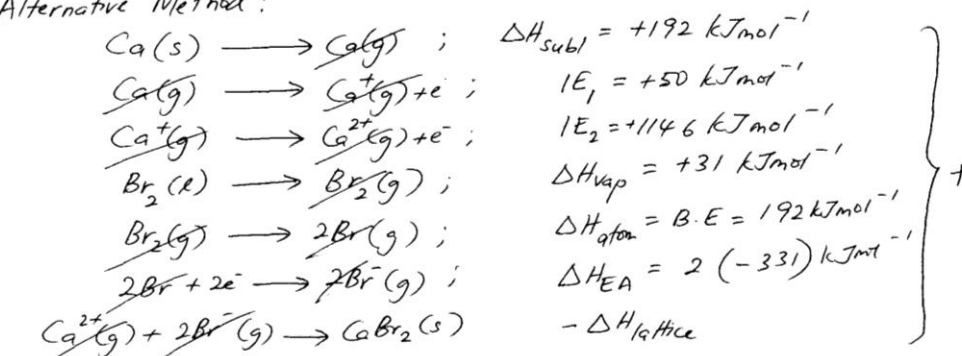 Alternative Method :
Ca(s) ⟶ Ca(g) ; ΔHsubl = +192 kJmol⁻¹
Ca(g) ⟶ Ca⁺(g) + e ; IE₁ = +50 kJmol⁻¹
Ca⁺(g) ⟶ Ca²⁺(g) + e⁻ ; IE₂ = +1146 kJmol⁻¹
Br₂(l) ⟶ Br₂(g) ; ΔHvap = +31 kJmol⁻¹
Br₂(g) ⟶ 2Br(g) ; ΔHatom = B.E = 192 kJmol⁻¹
2Br + 2e⁻ ⟶ 2Br⁻(g) ; ΔHEA = 2(-331) kJmol⁻¹
Ca²⁺(g) + 2Br⁻(g) ⟶ CaBr₂(s) - ΔHlattice
+